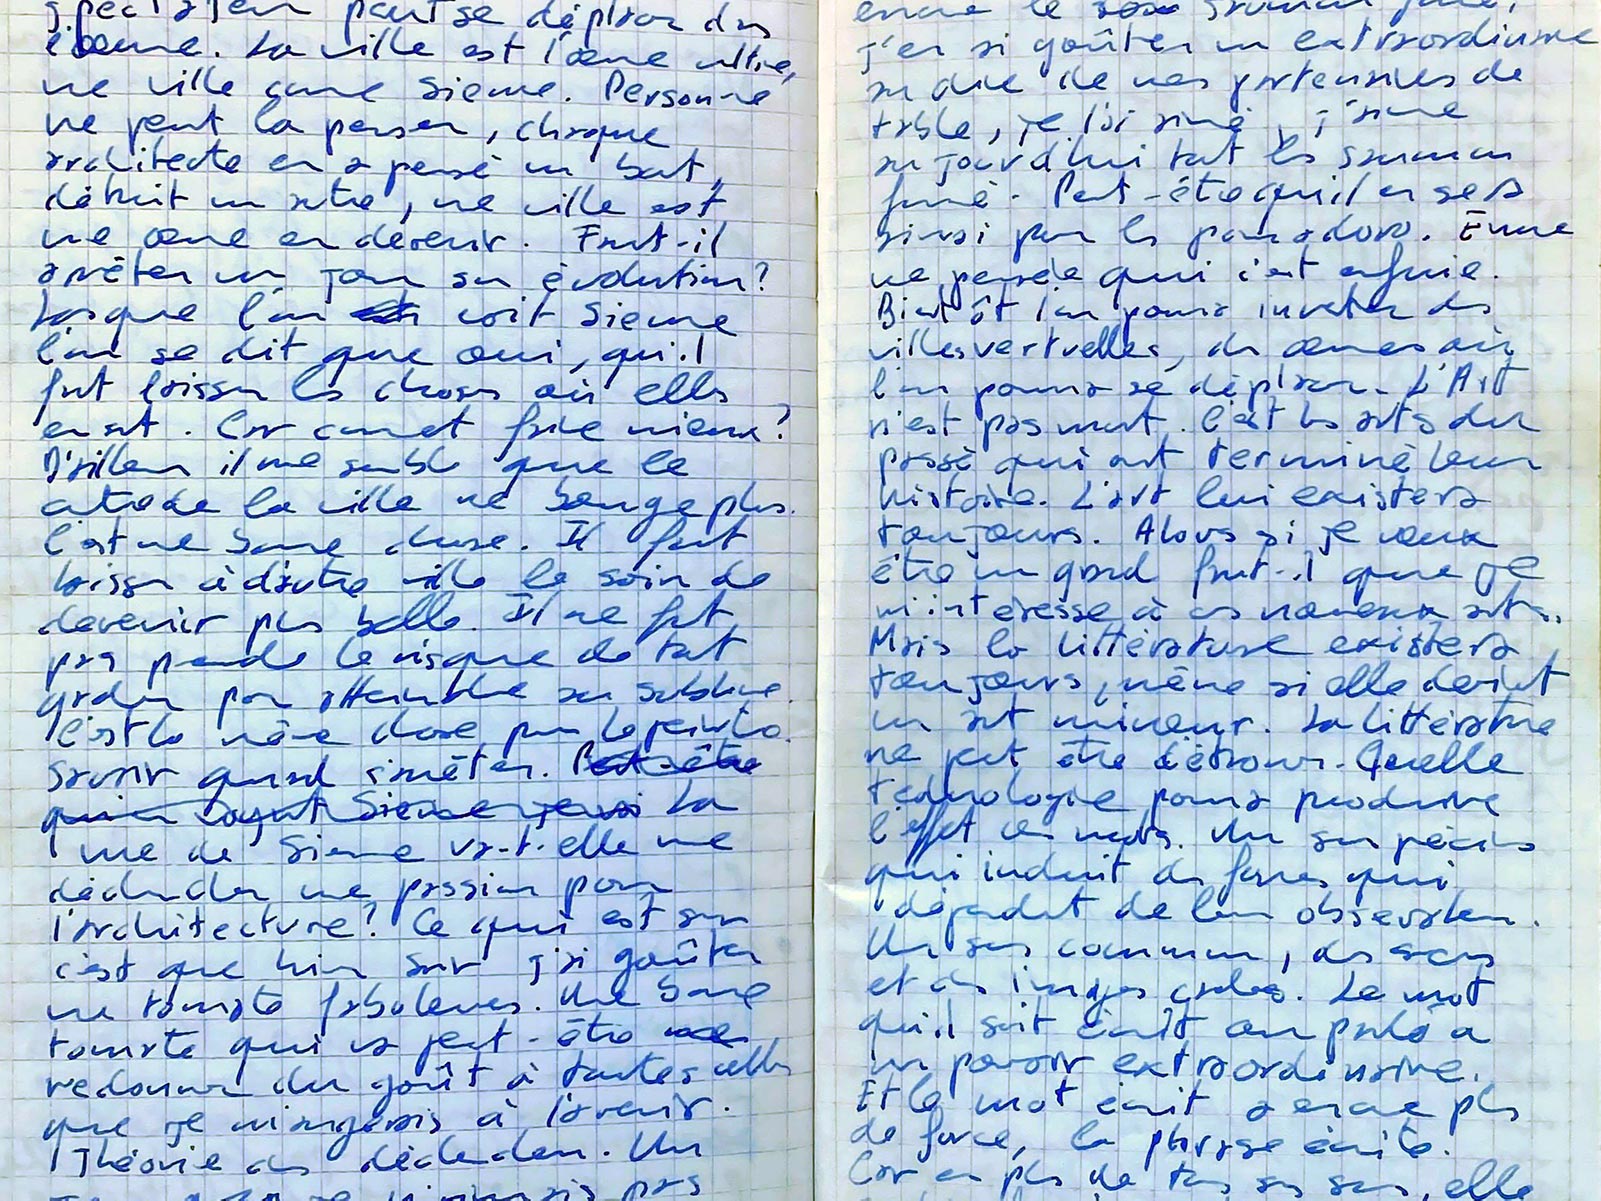 spectateur peut se déplacer dans
l'œuvre. La ville est l'œuvre ultime,
une ville comme Sienne. Personne
ne peut la penser, chaque
architecte en a pensé un bout,
détruit un autre, une ville est
une œuvre en devenir. Faut-il
arrêter un jour son évolution?
Lorsque l'on voit Sienne
l'on se dit que oui, qu'il
faut laisser les choses où elles
en sont. Car comment faire mieux?
D'ailleurs il me semble que le
centre de la ville ne bouge plus.
C'est une bonne chose. Il faut
laisser à d'autre ville le soin de
devenir plus belle. Il ne faut
pas prendre le risque de tout
gâcher pour atteindre son sublime.
C'est la même chose pour la peinture.
Savoir quand s'arrêter. Peut-être
qu'en voyant Sienne je La
vue de Sienne va-t-elle me
déclencher une passion pour
l'architecture? Ce qui est sûr
c'est que hier soir j'ai goûter
une tomate fabuleuses. Une bonne
tomate qui va peut-être
redonner du goût à toutes celles
que je mangerais à l'avenir.
Théorie des déclencheur. Un
pas
encore le saumon fumé,
j'en ai goûter un extraordinaire
au dire de mes partenaires de
table, je l'ai aimé, j'aime
aujourd'hui tout les saumon
fumé. Peut-être qu'il en sera
ainsi pour les pomodoro. Encore
une pensée qui s'est enfuie.
Bientôt l'on pourra inventer des
villes vertuelles, des œuvres où
l'on pourra se déplacer. L'Art
n'est pas mort. C'est les arts du
passé qui ont terminé leur
histoire. L'art lui existera
toujours. Alors si je veux
être un grand faut-il que je
m'intéresse à ces nouveaux arts.
Mais la littérature existera
toujours, même si elle devient
un art mineur. La littérature
ne peut être détrouner. Quelle
technologie pourra produire
l'effet des mots. Un son précis
qui induit des formes qui
dépendent de leur observateur.
Un sens commun, des sons
et des images cachés. Le mot
qu'il soit écrit ou parlé a
un pouvoir extraordinaire.
Et le mot écrit a encore plus
de force, la phrase écrite.
Car en plus de tous ses sens, elle